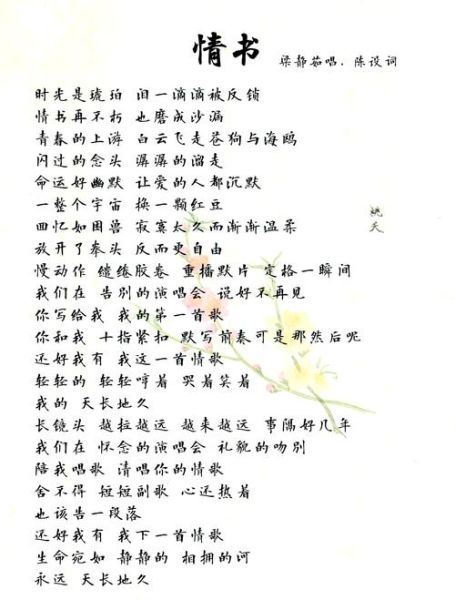 情书
梁静茹唱．陈设词
时光是琥珀 泪一滴滴被反锁
情书再不朽 也磨成沙漏
青春的上游 白云飞走苍狗与海鸥
闪过的念头 潺潺的溜走
命运好幽默 让爱的人都沉默
一整个宇宙 换一颗红豆
回忆如困兽 寂寞太久而渐渐温柔
放开了拳头 反而更自由
慢动作 缱绻胶卷 重播默片 定格一瞬间
我们在 告别的演唱会 说好不再见
你写给我 我的第一首歌
你和我 十指紧扣 默写前奏可是那然后呢
还好我有 我这一首情歌
轻轻的 轻轻哼着 哭着笑着
我的 天长地久
长镜头 越拉越远 越来越远 事隔好几年
我们在 怀念的演唱会 礼貌的吻别
陪我唱歌 清唱你的情歌
舍不得 短短副歌 心还热着
也该告一段落
还好我有 我下一首情歌
生命宛如 静静的 相拥的河
永远 天长地久
姚天